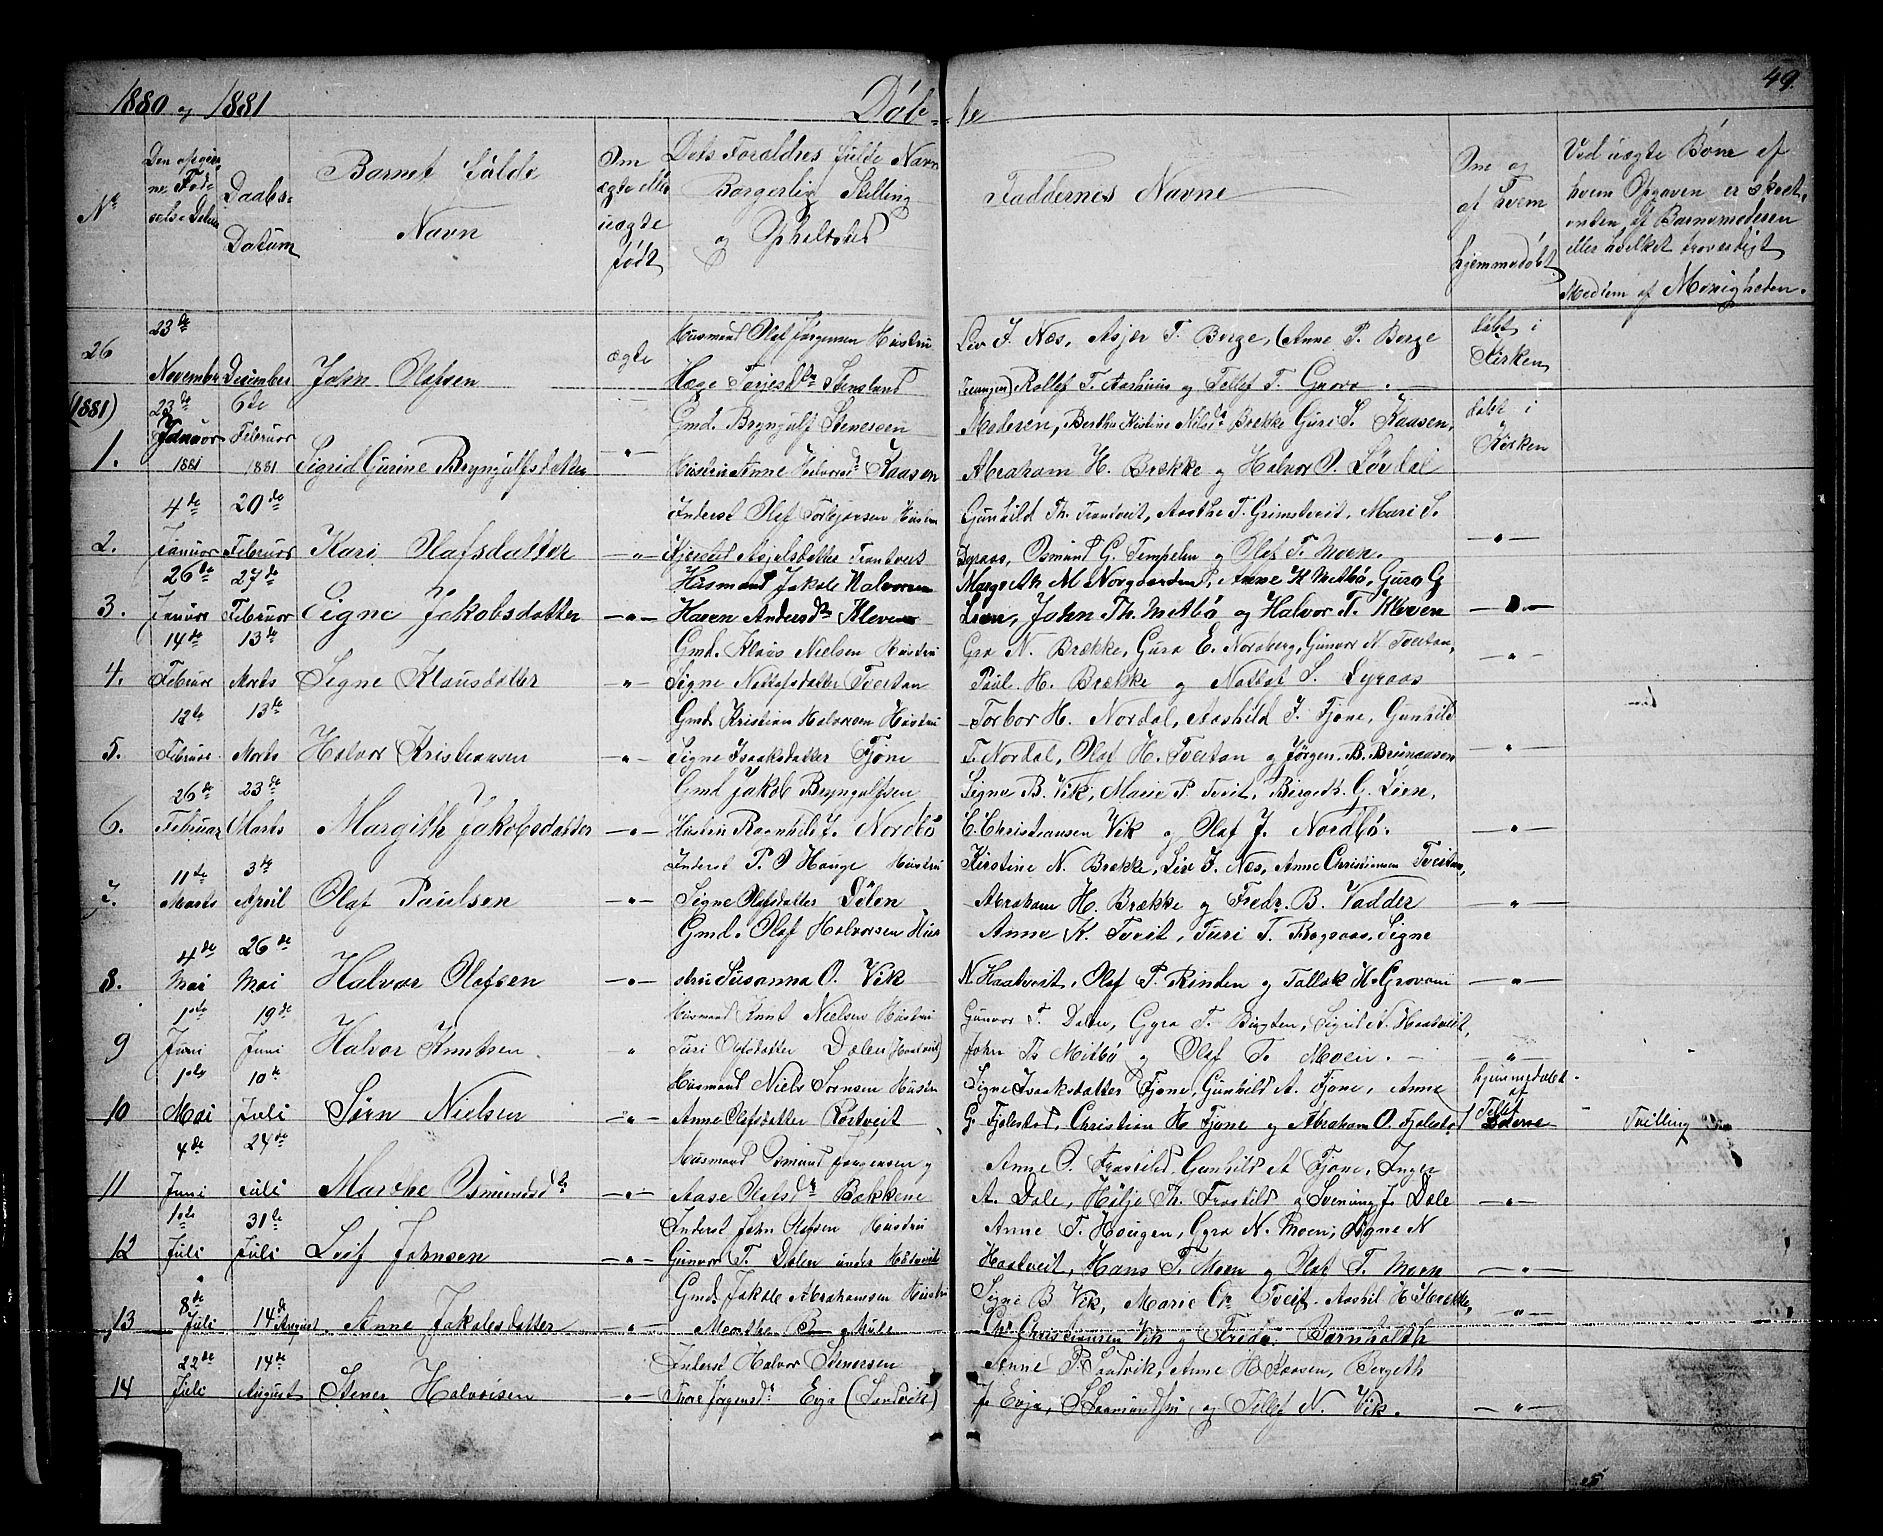 1880 og 1881 Døbte 49.
No
Den opgivne Fødelses Datum
Daabs Datum
Barnet fulde Navn
Om ægte eller uægte født
Dets Forældres fulde Navn Borgerlig Stilling og Opholdsted
Faddernes Navne
Om og af hvem hjemmedøbt
Ved uægte Børn af hvem Opgaven er skeet, af Barnemoderen eller hvilket troverdigt Medlem af Menigheden.
26 23de November December John Olafsen ægte Husmand Olaf Jørgensen Hustru
Hæge Torjesdtr Stensland
Liv J. Næs, Asjer T. Berge, (Anne P. Berge
Rollef T. Aarhuus og Tellef T. Grova.
døbt i Kirken
(1881)
1. 23de Januar 1881 6te Februar 1881 Sigrid Gurine Bryngulfsdatter — " — Gmd. Bryngulf Stenersen
Hustru Anne Halvorsd Kaasen
Moderen, Berthe Kistine Nilsd Brekke Guri S. Kaasen,
Abraham H. Brække og Halvor O. Lørdal
døbt i Kirken
2. 4de Januar 20de Februar Kari Olafsdatter — " — Inderst Olaf Torbjørnsen Hustru
Asjelsdatter Trontveit
Gunhild Th. Trontveit, Aasthe T. Grimstveit, Mari S.
Lyraas, Osmund G. Tempelen og Olaf T. Moen.
— " —
3. 26de Januar 27de Februar Signe Jakobsdatter — " — Husmand Jakob Halvorsen
Haren Andersdtr Kleven
Margreth M Norgaarden, Anne K Mitbø, Guro G
Lien, John Th. Mitbø og Halvor T. Kleven
— " —
4. 14de Februar 13de Marts Signe Klausdatter — " — Gmd. Klaus Nielsen Hustru
Signe Nottofsdatter Tveitan
Gro N. Brække, Guro E. Nordberg, Gunvor N Tveitan,
Paul H. Brække og Nottof S. Lyraas
— " —
5. 12te Februar 13de Marts Halvor Kristiansen — " — Gmd. Kristian Halvorsen Hustru
Signe Isaaksdatter Fjone
Torbor H. Nordal, Aashild J. Fjone, Gunhild
T. Nordal, Olaf H. Tveitan og Jørgen B. Brunaasen
— " —
6. 26de Februar 23de Marts Margith Jakobsdatter — " — Gmd Jakob Bryngulfsen
Hustru Ragnhild J. Nordbø
Signe B. Vik, Marie P. Tveit, Bergeth G. Lien,
C. Christiansen Vik og Olaf J. Nordbø.
— " —
7. 11te Marts 3de April Olaf Paulsen — " — Inderst P. O Hauge Hustru
Signe Olafsdatter Dølen
Kirstine N. Brække, Liv J. Næs, Anne Christiansen Tveitan,
Abraham H. Brække og Fredr. B. Vadder
— " —
8. 4de Mai 26de Mai Halvor Olafsen — " — Gmd. Olaf Halvorsen Hus
stru Susanna O. Vik
Anne K. Tveit, Turi T. Bogsaas, Signe
N. Haatveit, Olaf P. Rinden og Tallak H. Grovum
— " —
9 1ste Juni 19de Juni Halvor Knutsen " Husmand Knut Nielsen Hustru
Turi Olafsdatter Dalen (Haatveit)
Gunvor T. Dalen, Gyro T. Bugten, Sigrid N. Haatveit,
John Th Mitbø og Olaf T. Moen.
— " —
10 1ste Mai 10de Juli Sørn Nielsen — " — Husmand Niels Sørnsen Hustru
Anne Olafsdatter Rostveit
Signe Isaaksdatter Fjone, Gunhild A. Fjone, Anne
G. Fjolestad, Christian H. Fjone og Abraham O. Fjolestad
hjemmedøbt af Tellef
Tvilling
11 4de Juni 24de Juli Marthe Osmundsdtr — " — Husmand Osmund Jørgensen og
Aase Olafsdtr Bakkene
Anne O. Frostild, Gunhild A Fjone, Inger
A. Dale, Høljo Th. Frostild og Svenung J. Dale
— " —
12 1ste Juli 31te Juli Leif Johnsen — " — Inderst John Olafsen Hustru
Gunvor T. Dalen under Haatveit
Anne T. Haugen, Gyro N. Moen, Signe N
Haatveit, Hans T. Moen og Olaf T. Moen
— " —
13 8de Juli 14de August Anne Jakobsdatter — " — Gmd. Jakob Abrahamsen Hustru
Marthe
Signe B Vik, Marie Chr Tveit, Aashil H Brække,
Chr. Christiansen Vik og Fredr. Barnholdth
— " —
14 22de Juli 14de August Stener Halvorsen — " — Inderst Halvor Stenersen
Thore Jørgensdtr Evja (Sandvik)
Anne P. Sandvik, Anne H. Kaasen, Bergeth
J. Evja, og Tellef N. Vik.
— " —
5